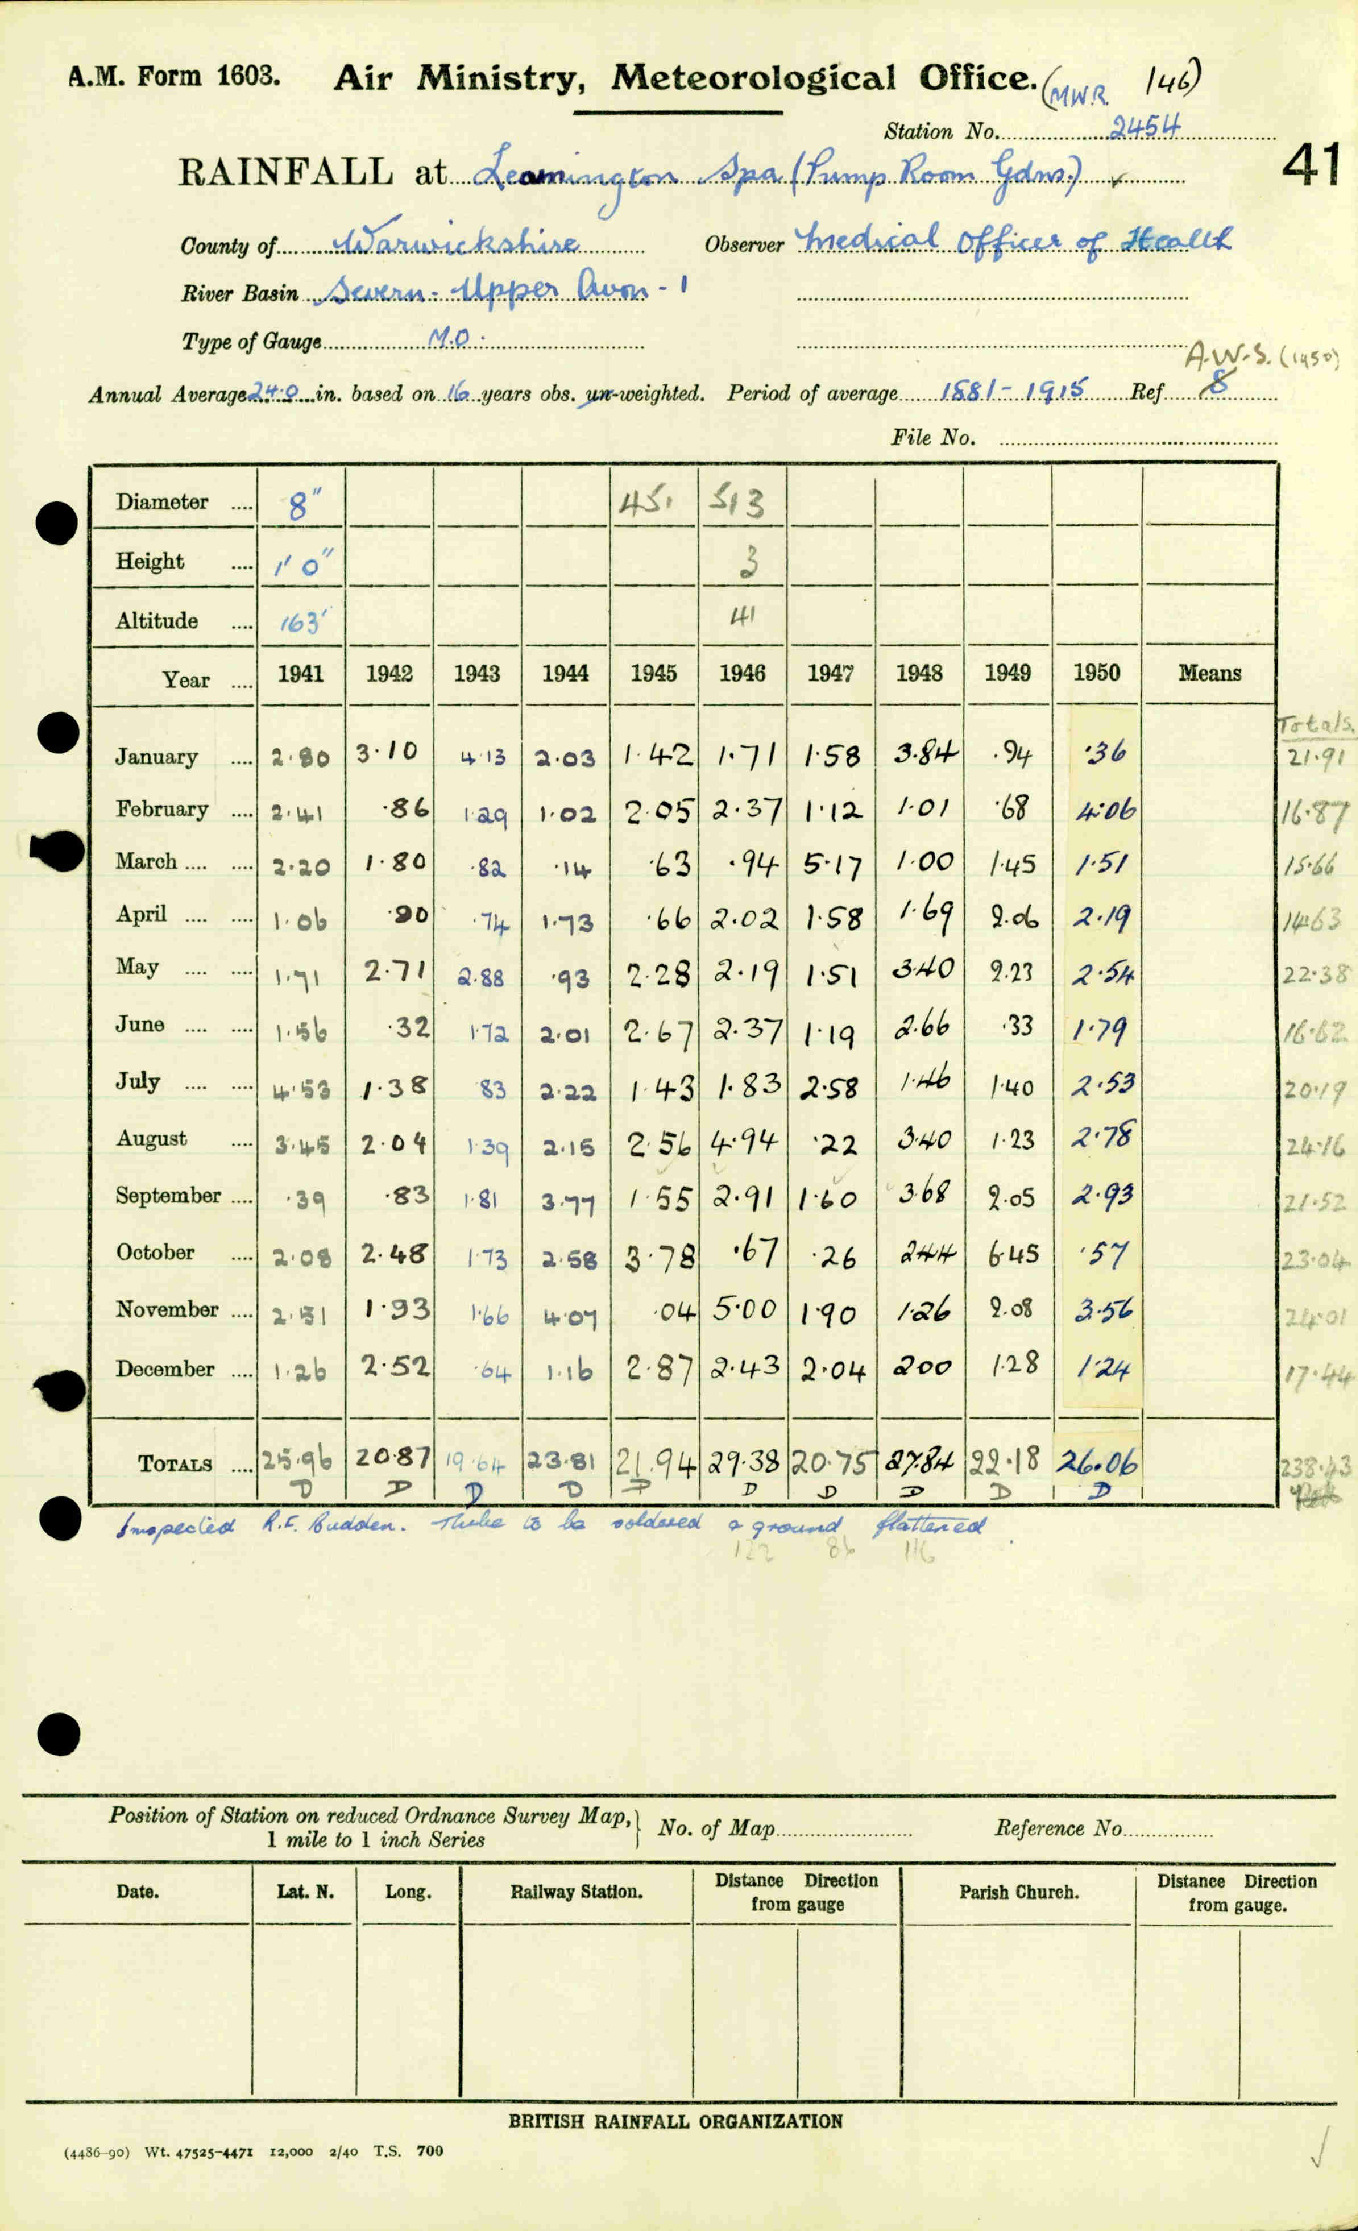 A.M. Form 1603. Air Ministry, Meteorological Office. (MWR 146)
Station No. 2454
41
RAINFALL at Leamington Spa (Pump Room Gdns.) ✓
County of Warwickshire Observer Medical Officer of Health
River Basin Severn - Upper Avon - 1
Type of Gauge M.O.
A.W.S. (1950)
Annual Average 24.0 in. based on 16 years obs. un-weighted. Period of average 1881-1915 Ref. 8
File No.
Diameter 8" 451 513
Height 1' 0" 3
Altitude 163' 41
Year 1941 1942 1943 1944 1945 1946 1947 1948 1949 1950 Means
Totals.
January 2.80 3.10 4.13 2.03 1.42 1.71 1.58 3.84 .94 .36 21.91
February 2.41 .86 1.29 1.02 2.05 2.37 1.12 1.01 .68 4.06 16.87
March 2.20 1.80 .82 .14 .63 .94 5.17 1.00 1.45 1.51 15.66
April 1.06 .90 .74 1.73 .66 2.02 1.58 1.69 2.06 2.19 14.63
May 1.71 2.71 2.88 .93 2.28 2.19 1.51 3.40 2.23 2.54 22.38
June 1.56 .32 1.72 2.01 2.67 2.37 1.19 2.66 .33 1.79 16.62
July 4.53 1.38 .83 2.22 1.43 1.83 2.58 1.46 1.40 2.53 20.19
August 3.45 2.04 1.39 2.15 2.56 4.94 .22 3.40 1.23 2.78 24.16
September .39 .83 1.81 3.77 1.55 2.91 1.60 3.68 2.05 2.93 21.52
October 2.08 2.48 1.73 2.58 3.78 .67 .26 2.44 6.45 .57 23.04
November 2.51 1.93 1.66 4.07 .04 5.00 1.90 1.26 2.08 3.56 24.01
December 1.26 2.52 .64 1.16 2.87 2.43 2.04 2.00 1.28 1.24 17.44
TOTALS 25.96 20.87 19.64 23.81 21.94 29.38 20.75 27.84 22.18 26.06 238.43
D D D D D D D D D D
Inspected R.F. Budden. Tube to be soldered & ground flattened.
122 86 116
Position of Station on reduced Ordnance Survey Map, 1 mile to 1 inch Series } No. of Map Reference No.
Date. Lat. N. Long. Railway Station. Distance Direction from gauge Parish Church. Distance Direction from gauge.
BRITISH RAINFALL ORGANIZATION
(4486-90) Wt. 47525-4471 12,000 2/40 T.S. 700
✓